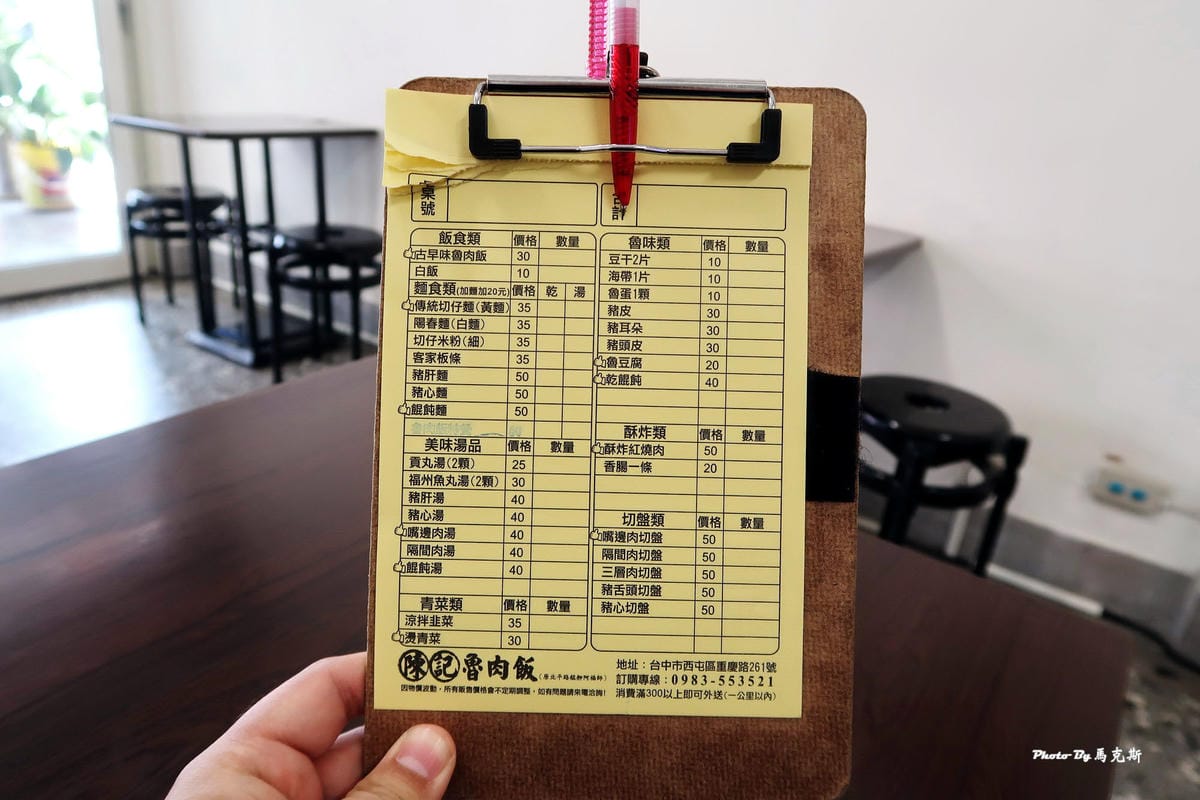 桌號
合計
飯食類 價格 數量
古早味魯肉飯 30
白飯 10
麵食類(加麵加20元) 價格 乾 湯
傳統切仔麵(黃麵) 35
陽春麵(白麵) 35
切仔米粉(細) 35
客家板條 35
豬肝麵 50
豬心麵 50
餛飩麵 50
美味湯品 價格 數量
貢丸湯(2顆) 25
福州魚丸湯(2顆) 30
豬肝湯 40
豬心湯 40
嘴邊肉湯 40
隔間肉湯 40
餛飩湯 40
青菜類 價格 數量
涼拌韭菜 35
燙青菜 30
魯味類 價格 數量
豆干2片 10
海帶1片 10
魯蛋1顆 10
豬皮 30
豬耳朵 30
豬頭皮 30
魯豆腐 20
乾餛飩 40
酥炸類 價格 數量
酥炸紅燒肉 50
香腸一條 20
切盤類 價格 數量
嘴邊肉切盤 50
隔間肉切盤 50
三層肉切盤 50
豬舌頭切盤 50
豬心切盤 50
陳記魯肉飯
因物價波動,所有販售價格會不定期調整,如有問題請來電洽詢!
地址:台中市西屯區重慶路261號
訂購專線:0983-553521
消費滿300以上即可外送(一公里以內)
Photo By 馬克斯